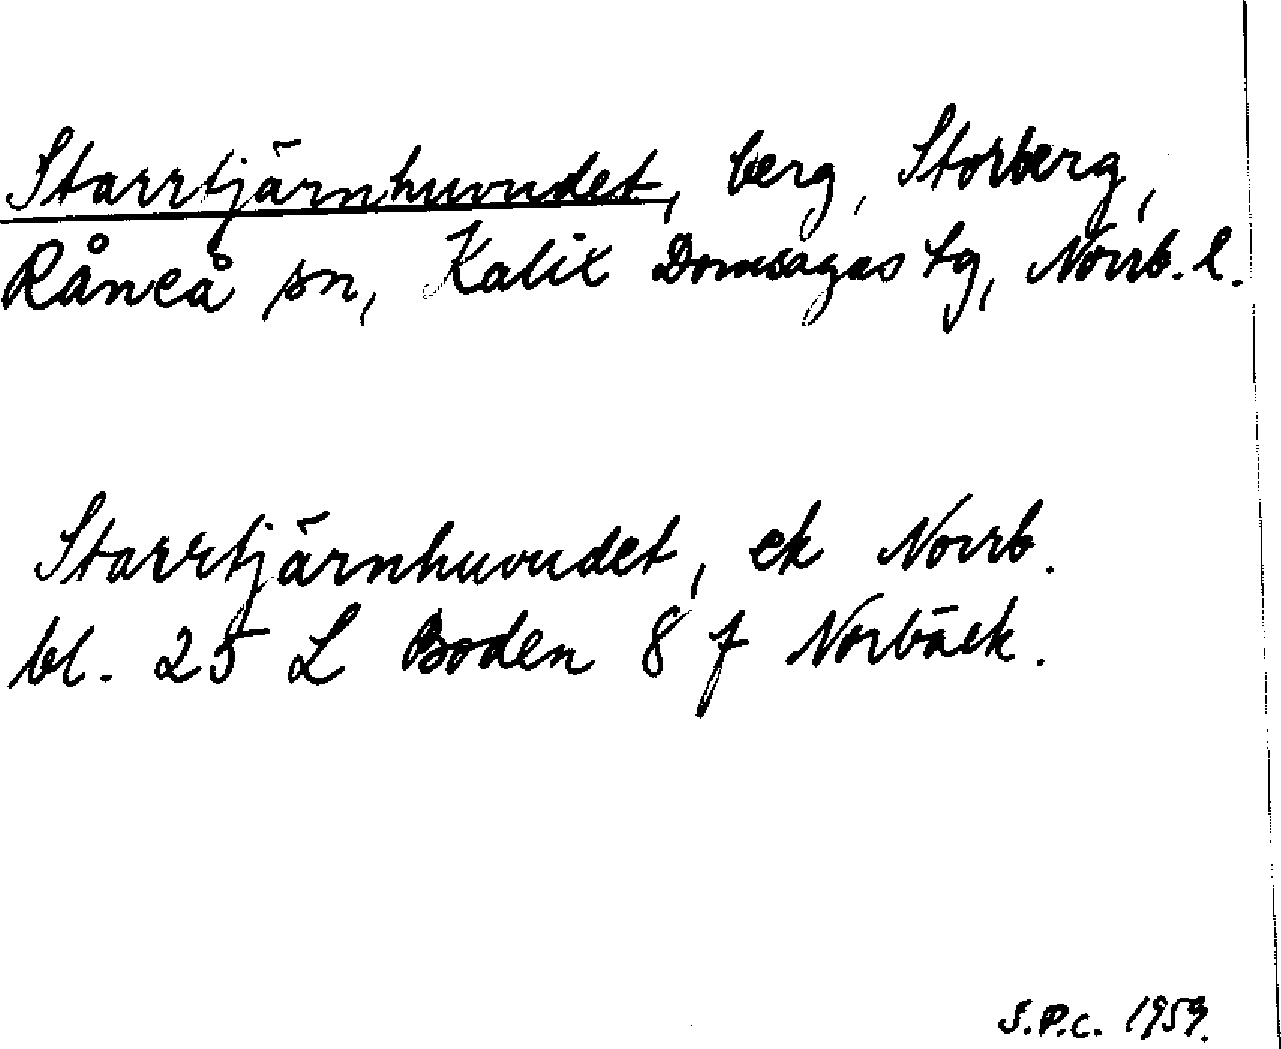 Starrtjärnhuvudet, berg, Storberg,
Råneå sn, Kalix Domsagas tg, Norrb. l.
Starrtjärnhuvudet, ek Norrb.
bl. 25 L Boden 8 f Norbäck.
S.P.C. 1959.